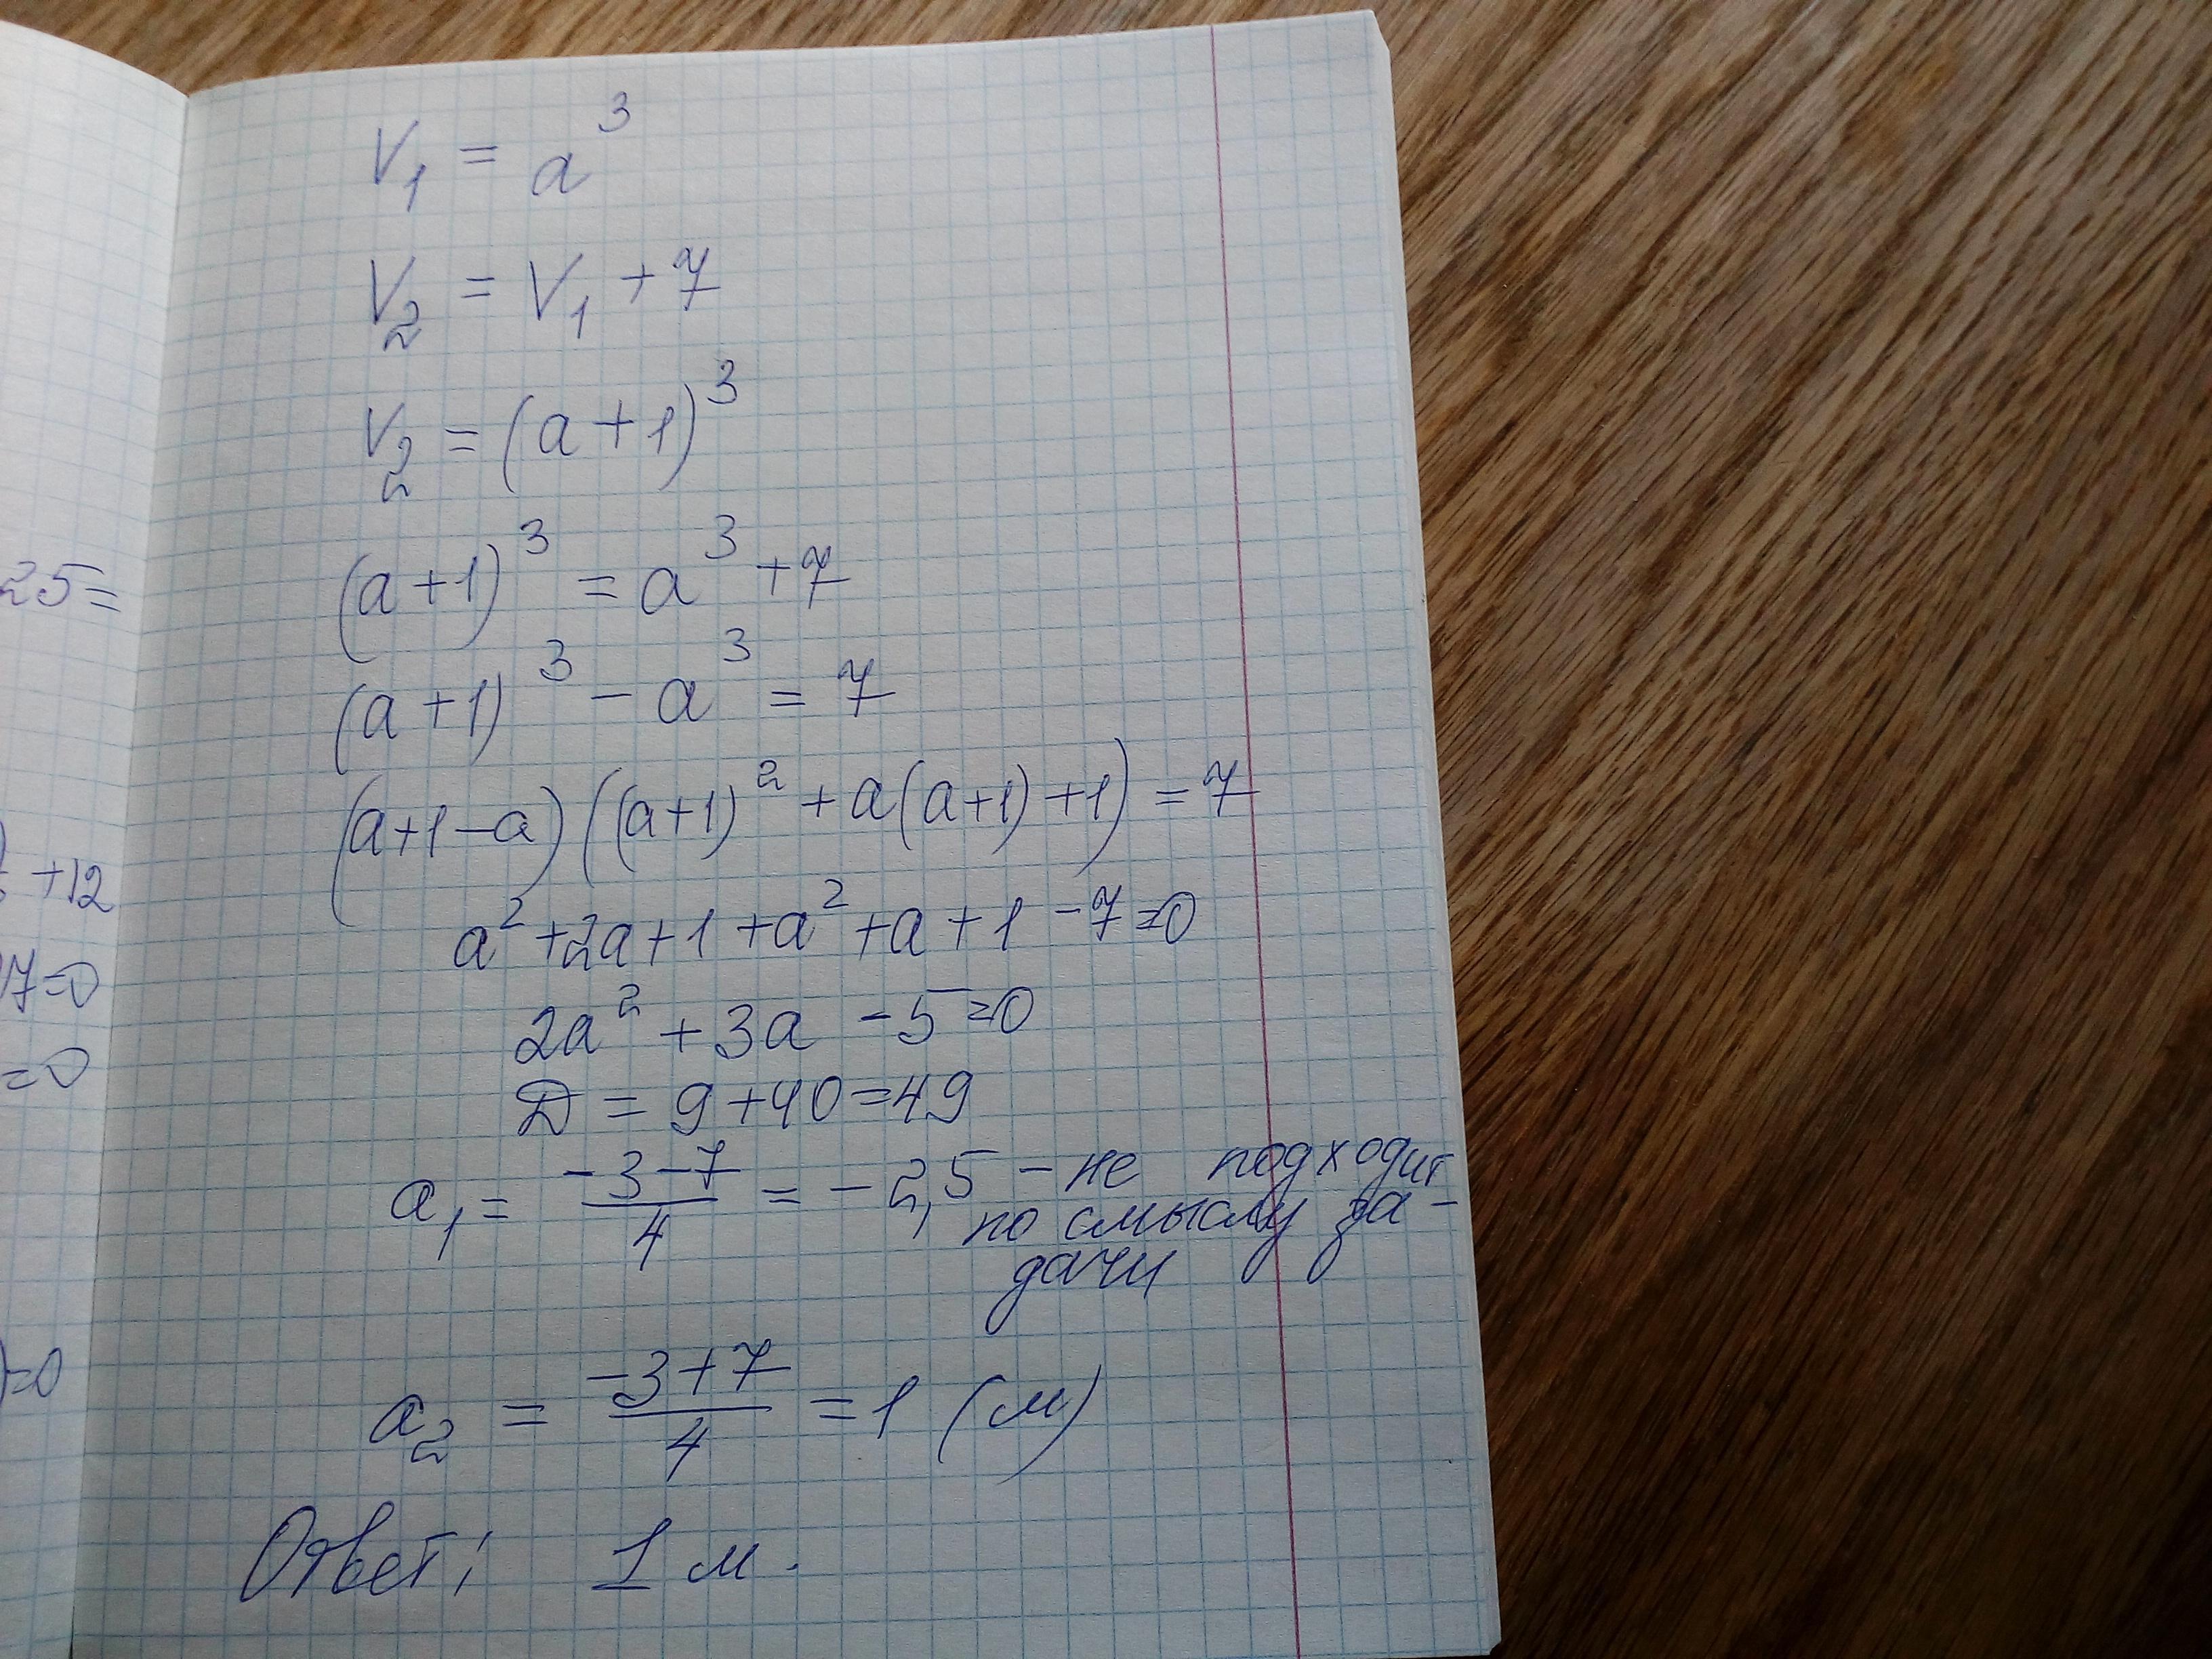 V₁ = a³
V₂ = V₁ + 7
V₂ = (a + 1)³
(a + 1)³ = a³ + 7
(a + 1)³ − a³ = 7
(a+1−a)((a+1)² + a(a+1) + 1) = 7
a² + 2a + 1 + a² + a + 1 − 7 = 0
2a² + 3a − 5 = 0
D = 9 + 40 = 49
a₁ = (−3−7)/4 = −2,5 − не подходит
по смыслу за-
дачи
a₂ = (−3+7)/4 = 1 (м)
Ответ: 1 м.
25=
+12
7=0
=0
)=0